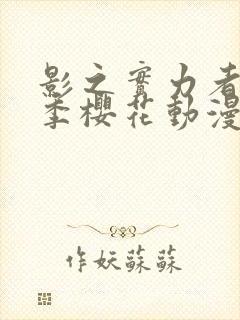 影之實力者
季櫻花動漫
作妖蘇蘇